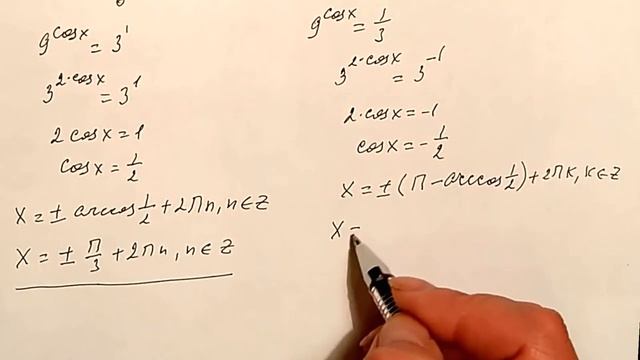 9^cosx = 3^1
3^2·cosx = 3^1
2cosx = 1
cosx = 1/2
X = ± arccos 1/2 + 2Πn, n∈Z
X = ± Π/3 + 2Πn, n∈Z
9^cosx = 1/3
3^2·cosx = 3^-1
2·cosx = -1
cosx = -1/2
X = ±(Π - arccos 1/2) + 2Πk, k∈Z
X =